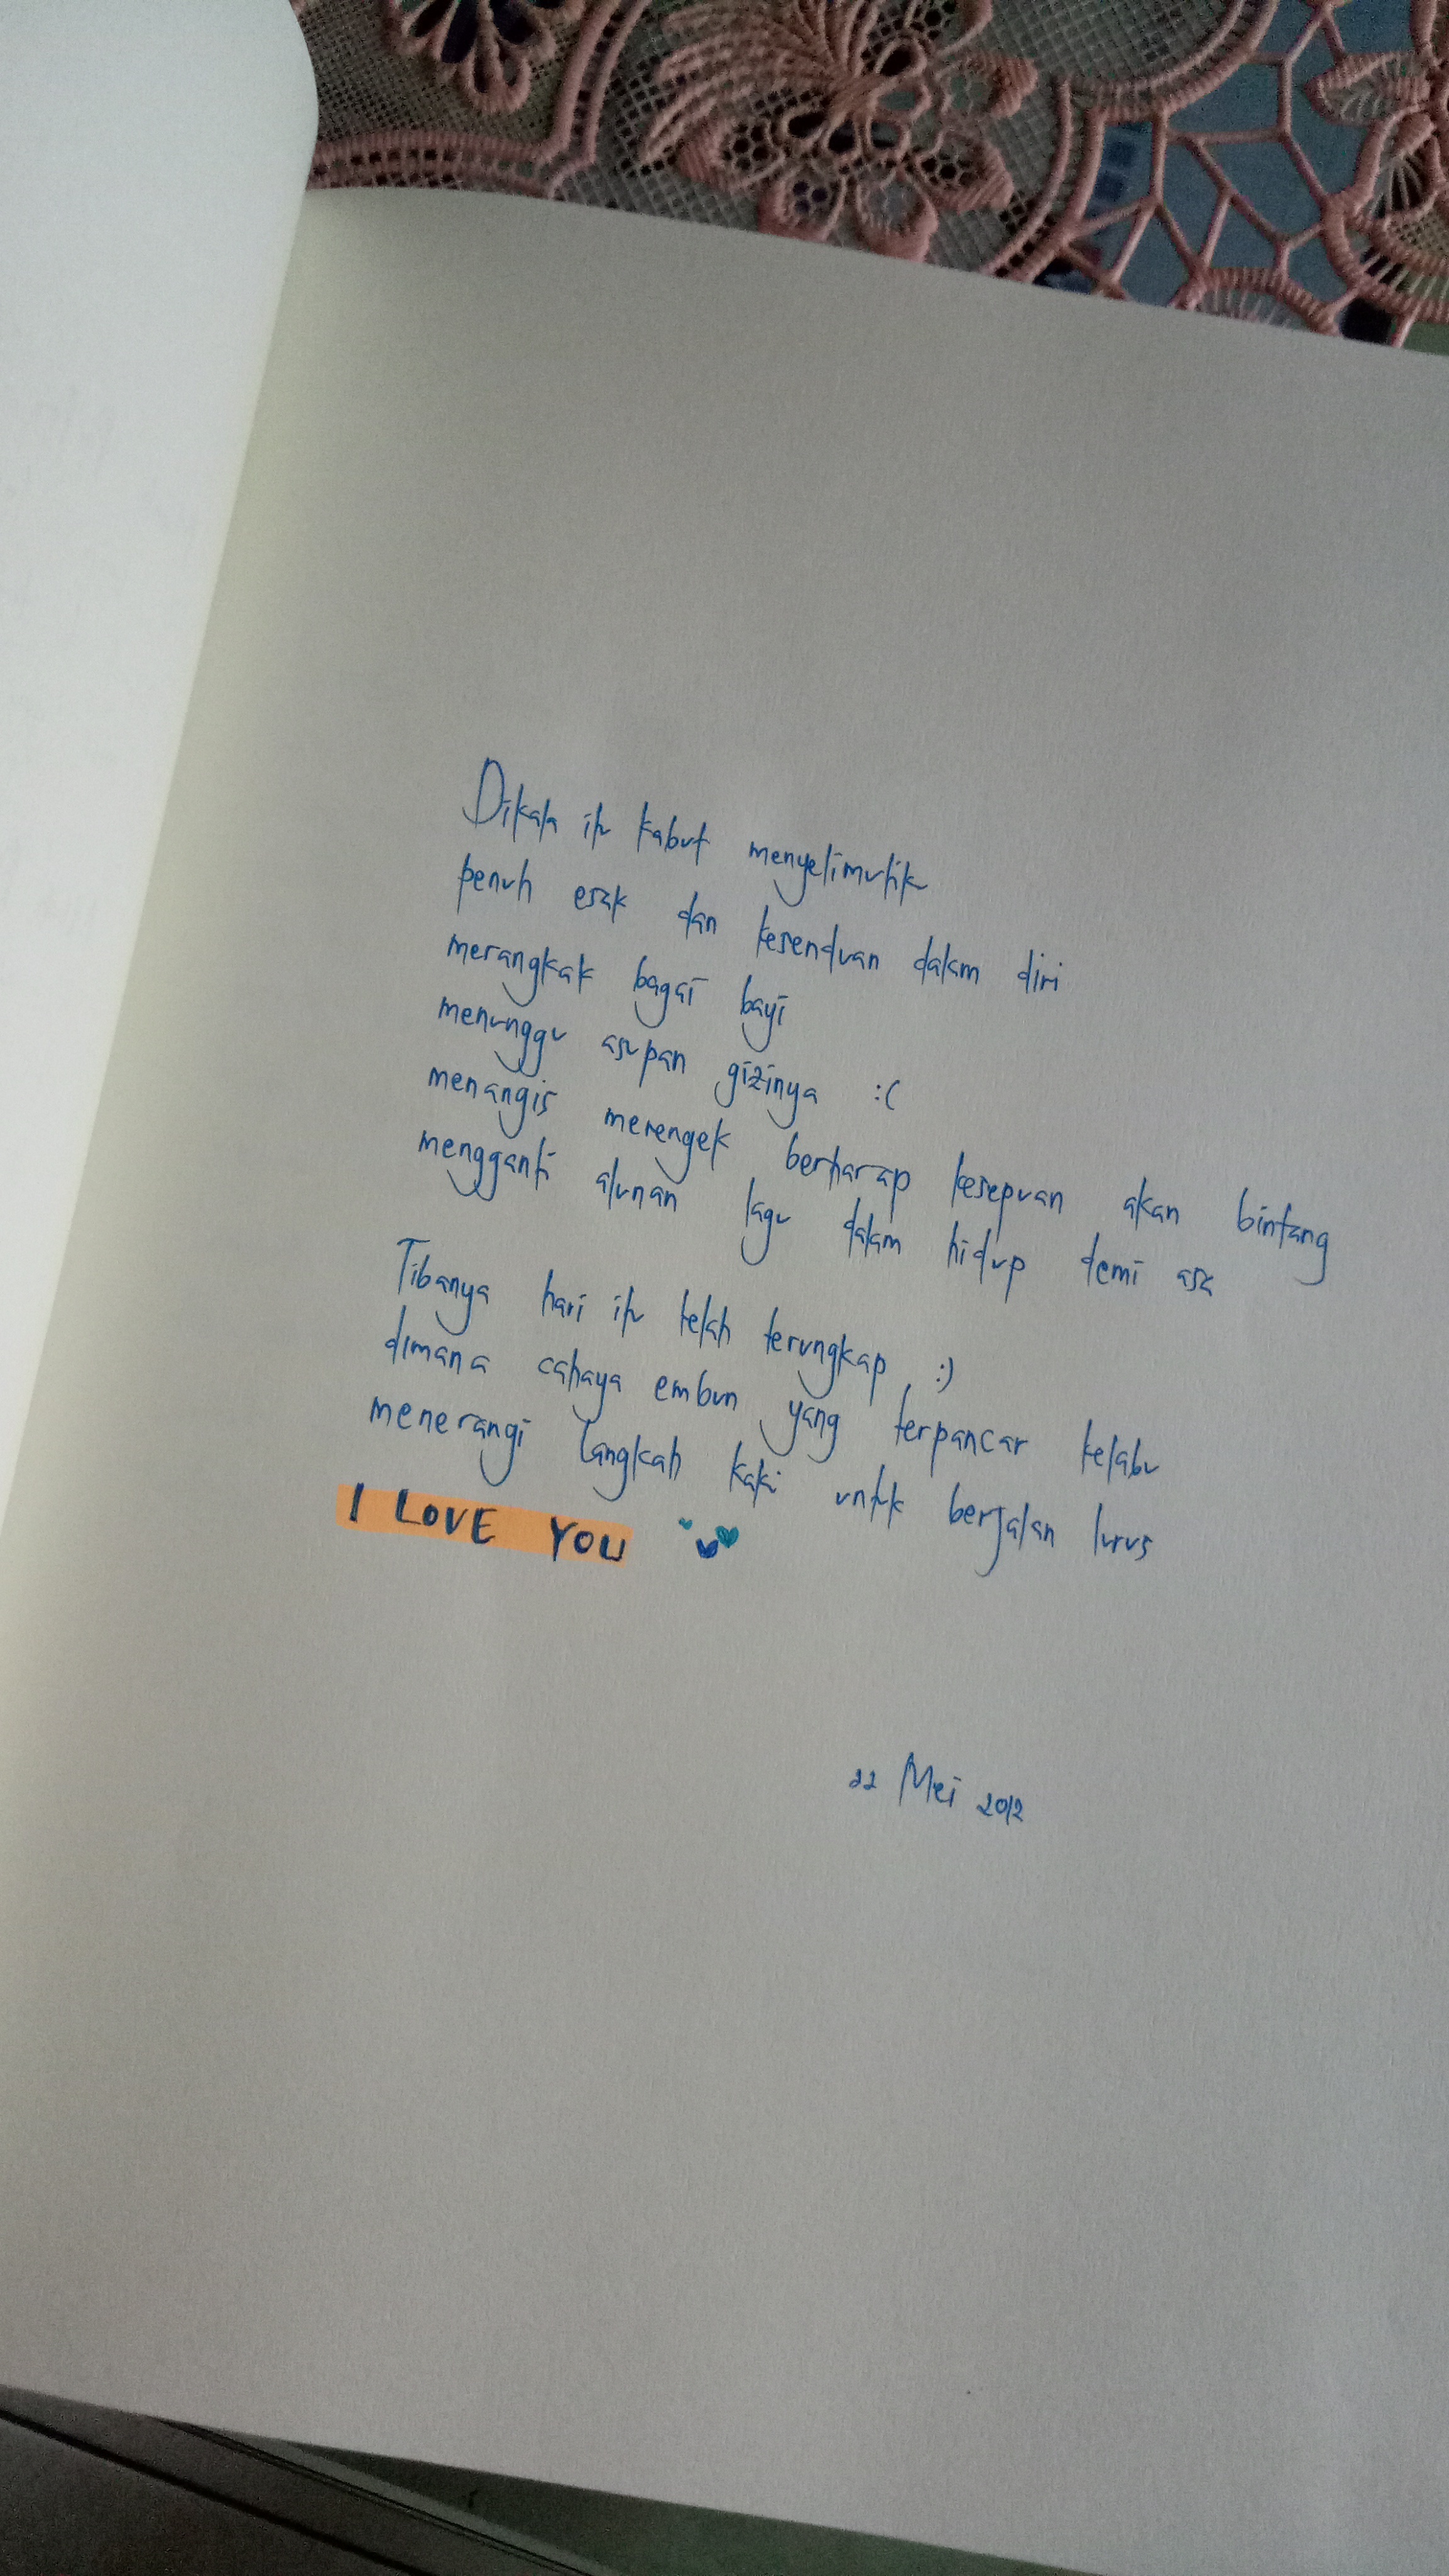 Dikala itu kabut menyelimutik
penuh esak dan kesenduan dalam diri
merangkak bagai bayi
menunggu asupan gizinya :(
menangis merengek berharap kesepuan akan bintang
mengganti alunan lagu dalam hidup demi asa
Tibanya hari itu telah terungkap :)
dimana cahaya embun yang terpancar kelabu
menerangi langkah kaki untuk berjalan lurus
I LOVE YOU
22 Mei 2012